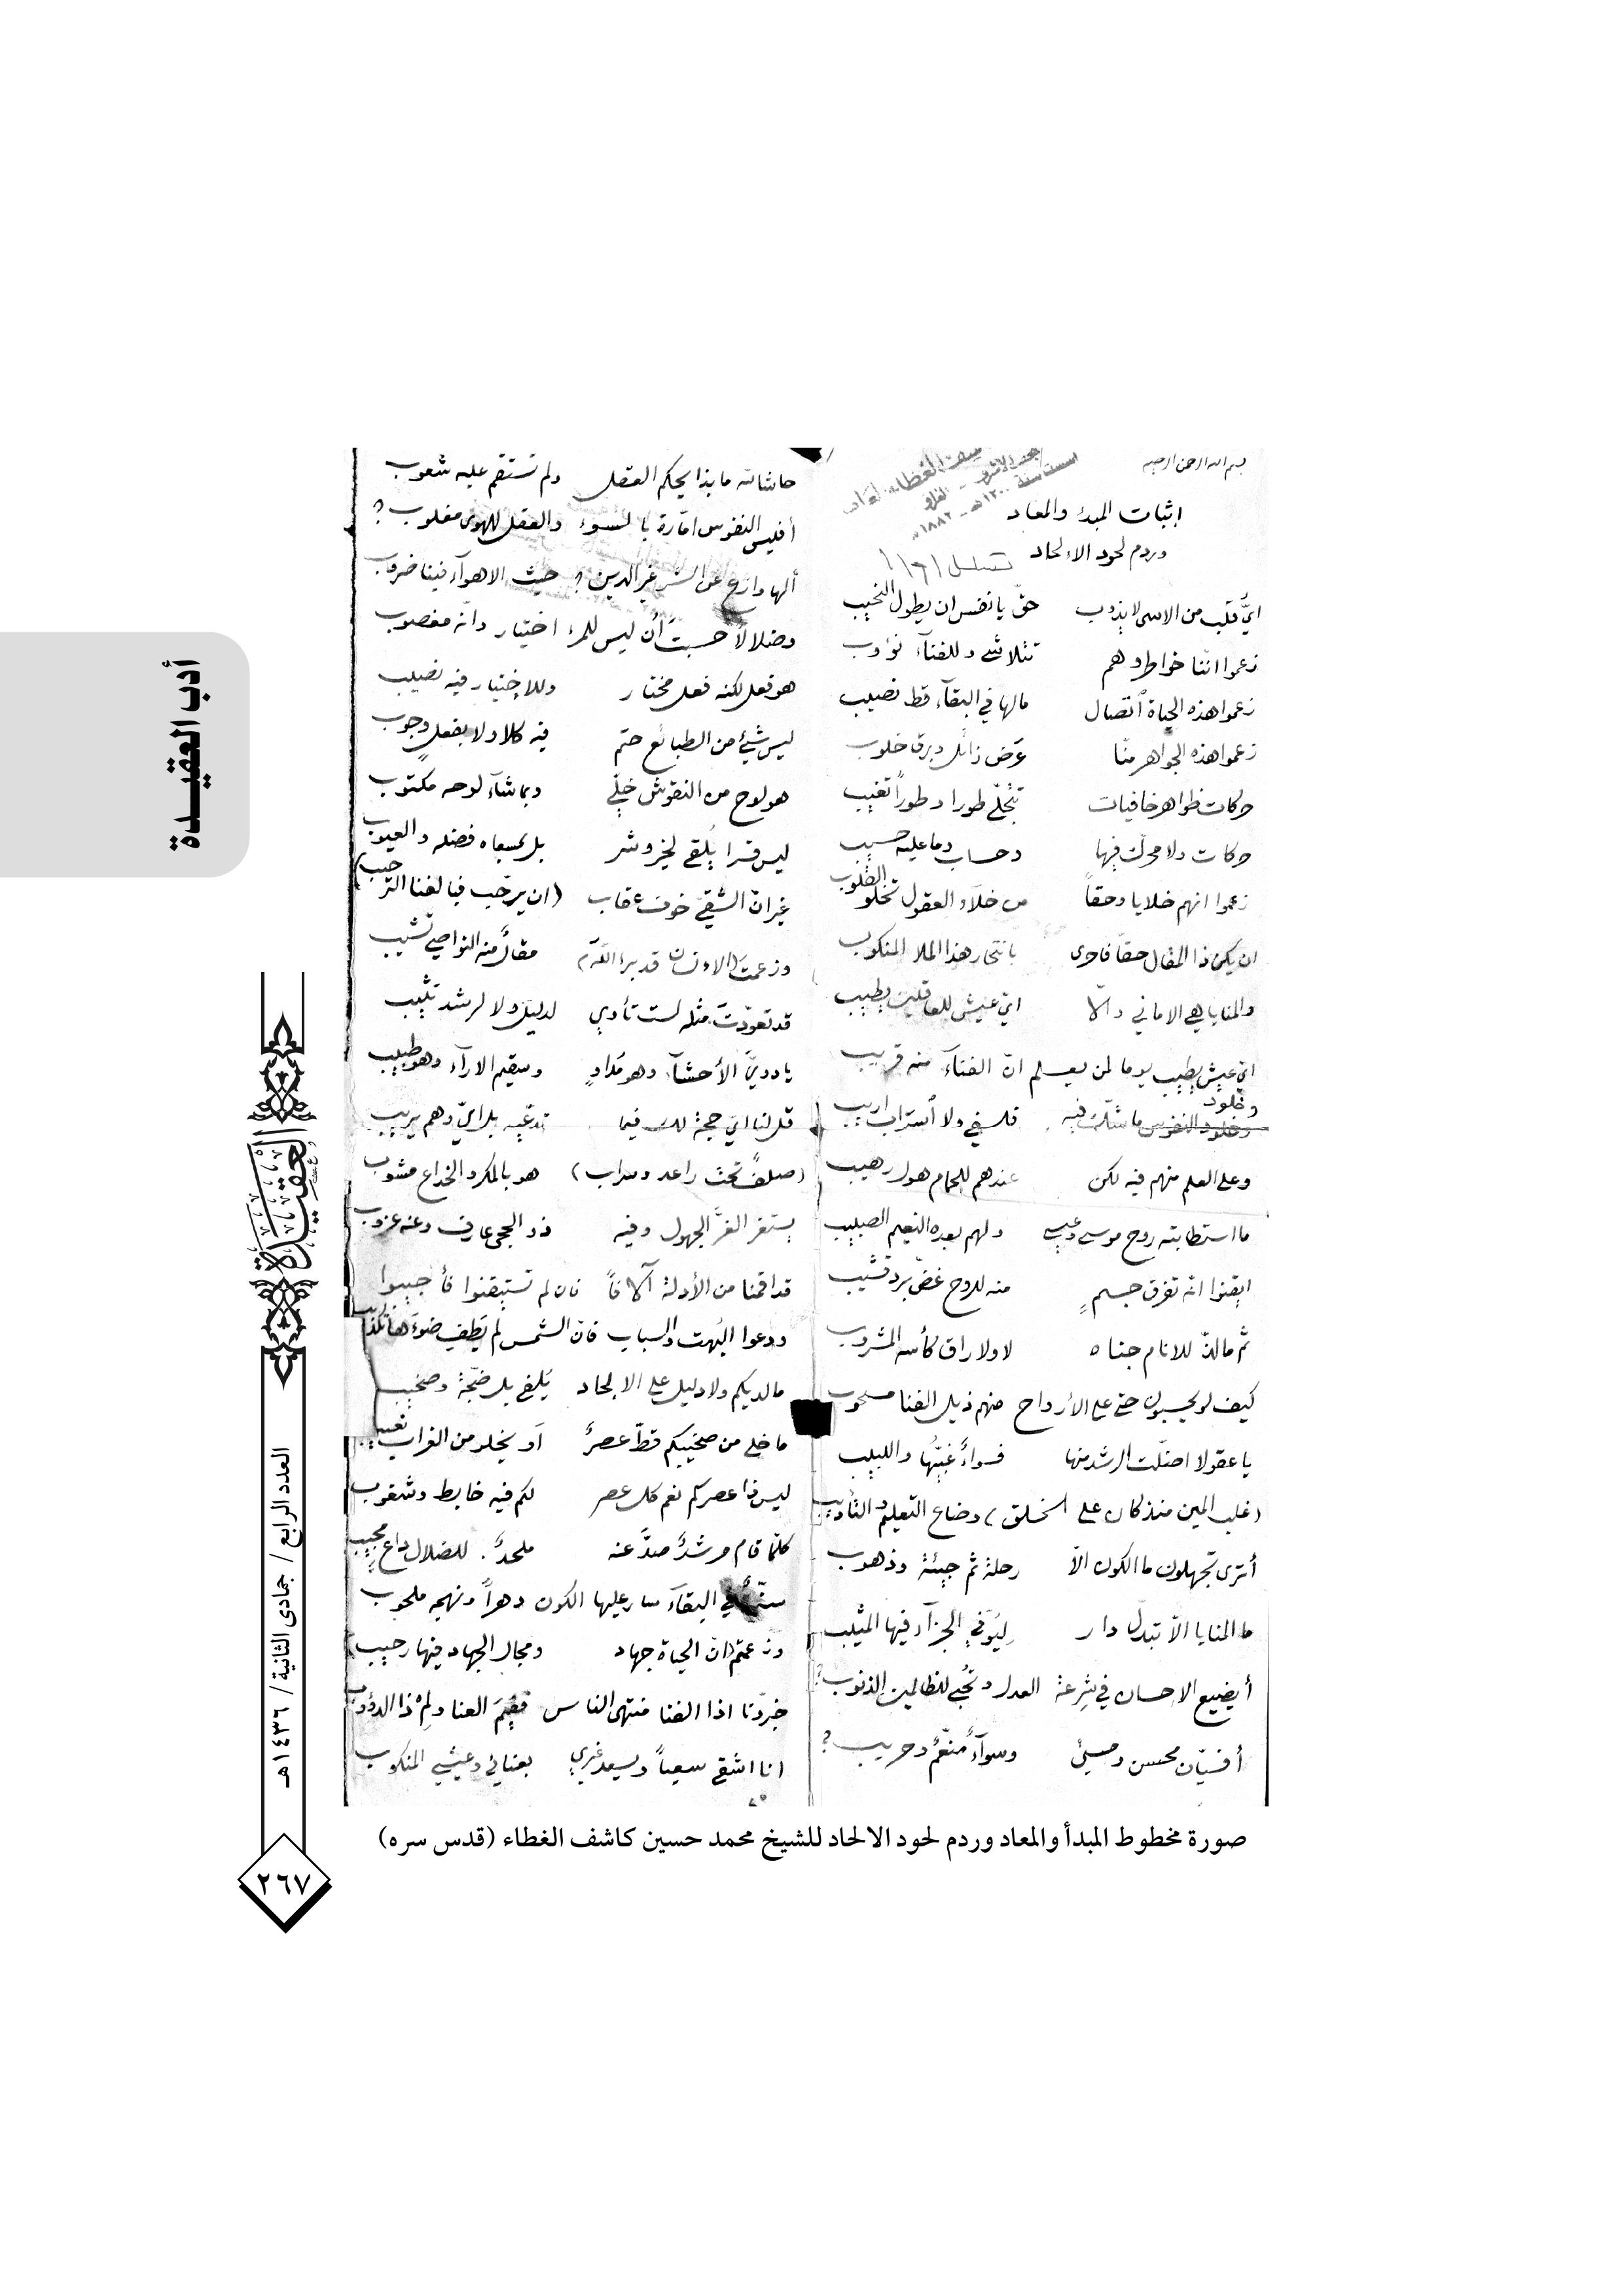 بسم الله الرحمن الرحيم
اثبات المبدء والمعاد
وردم لحود الالحاد
ايُّ قلب من الاسى لا يذوب حقّ يا نفس ان يطول النحيب
زعموا اننا خواطر وهم تتلاشى وللفنآء نؤوب
زعموا هذه الحياة اتصال مالها في البقآء قط نصيب
زعموا هذه الجواهر منّا عَرَض زائل وبرق خلوب
حركات ظواهر خافيات تتجلّى طورا وطوراً تغيب
حركات ولا محرك فيها وحساب وما عليه حسيب
زعموا انهم خلايا وحقاً من خلاء العقول تخلو القلوب
ان يكن ذا المقال حقاً فاحرى بانتحار هذا الملا المنكوب
والمنايا هي الاماني والّا ايّ عيش للعاقلين يطيب
ايّ عيش يطيب يوما لمن يعلم انّ الفنآء منه قريب
وخلود النفوس ما شك فيه فلسفي ولا استراب اريب
وعلى العلم منهم فيه لكن عندهم للحمام هول رهيب
ما استطابته روح موسى وعيسى ولهم بعده النعيم الصبيب
ايقنوا انه تفرق جسمٍ منه للروح غضّ برد قشيب
ثم مالذّ للانام جناه لا ولا راق كأسه المشروب
كيف لو يحسبون حتى على الأرواح منهم ذيل الفنا مسحوب
يا عقولا اضلّت الرشد منها فسواءٌ غبيّها واللبيب
(غلب المين منذ كان على الخلق) وضاع التعليم والتأديب
أترى تجهلون ما الكون الّا رحلة ثم جيئة وذهوب
ما المنايا الّا تبدّل دار ليُوَفّى الجزآء فيها المثيب
أيضيع الاحسان في شرعة العدل وتُجبى للظالمين الذنوب؟
أفسيّان محسن ومسيئ وسوآءٌ منعّم وحريب؟
حاشا لله ما بذا يحكم العقل ولم تستقم عليه شعوب
أفليس النفوس امّارة بالسوء والعقل للهوى مغلوب؟
ألها وازع عن الشر غير الدين؟ حيث الاهوآء فينا ضروب
وضلالاً حسبتَ أن ليس للمرء اختيار وانه مغصوب
هو فعل لكنه فعل مختار وللاختيار فيه نصيب
ليس شيئ من الطبائع حتم فيه كلا ولا بفعلٍ وجوب
هو لوح من النقوش خليّ وبما شآء لوحه مكتوب
ليس قسرا يُلقى لخير وشر بل بمسعاه فضله والعيوب
غير انّ الشقيّ خوف عقاب (ان يرحّب فبالفنا الترحيب)
وزعمتَ (الانسان قد برء الله) مقالٌ منه النواصي تشيب
قد تعودّتَ مثله لست تأوي لدليل ولا لرشد تثيب
يا دويّ الأحشآء وهو مُداوٍ وسقيم الارآء وهو طبيب
قل لنا ايّ حجة لك فيما تدعيه بل ايّ وهم يريب
(صلفٌ تحت راعد وسراب) هو بالمكر والخداع مشوب
يستفز الغرّ الجهول وفيه ذو الحجى عارف وعنه عزوب
قد اقمنا من الأدلة آلافاً فان لم تستيقنوا فأجيبوا
ودعوا البُهت والسباب فانّ الشمس لم يَطفِ ضوءَها تكذيب
ما لديكم ولا دليل على الالحاد يُلفى بل ضجّة وصخيب
ما خلى من صخيبكم قطّ عصرٌ اَو يخلو من الغراب نعيب
ليس ذا عصركم نعم كل عصر لكم فيه خابط وشغوب
كلّما قام مرشدٌ صدّ عنه ملحدٌ للضلال داع مجيب
سنّة في البقآء سار عليها الكون دهراً ونهجه ملحوب
وزعمتم (انّ الحياة جهاد ومجال الجهاد فيها رحيب)
خبّرونا اذا الفنا منتهى الناس ففيمَ العنا ولِمْ ذا الدؤوب
انا اشقى سعياً ويسعد غيري بعنائي وعيشي المنكوب
صورة مخطوط المبدأ والمعاد وردم لحود الالحاد للشيخ محمد حسين كاشف الغطاء (قدس سره)
أدب العقيـــدة
العقيدة
العدد الرابع / جمادى الثانية / ١٤٣٦هـ
٢٦٧